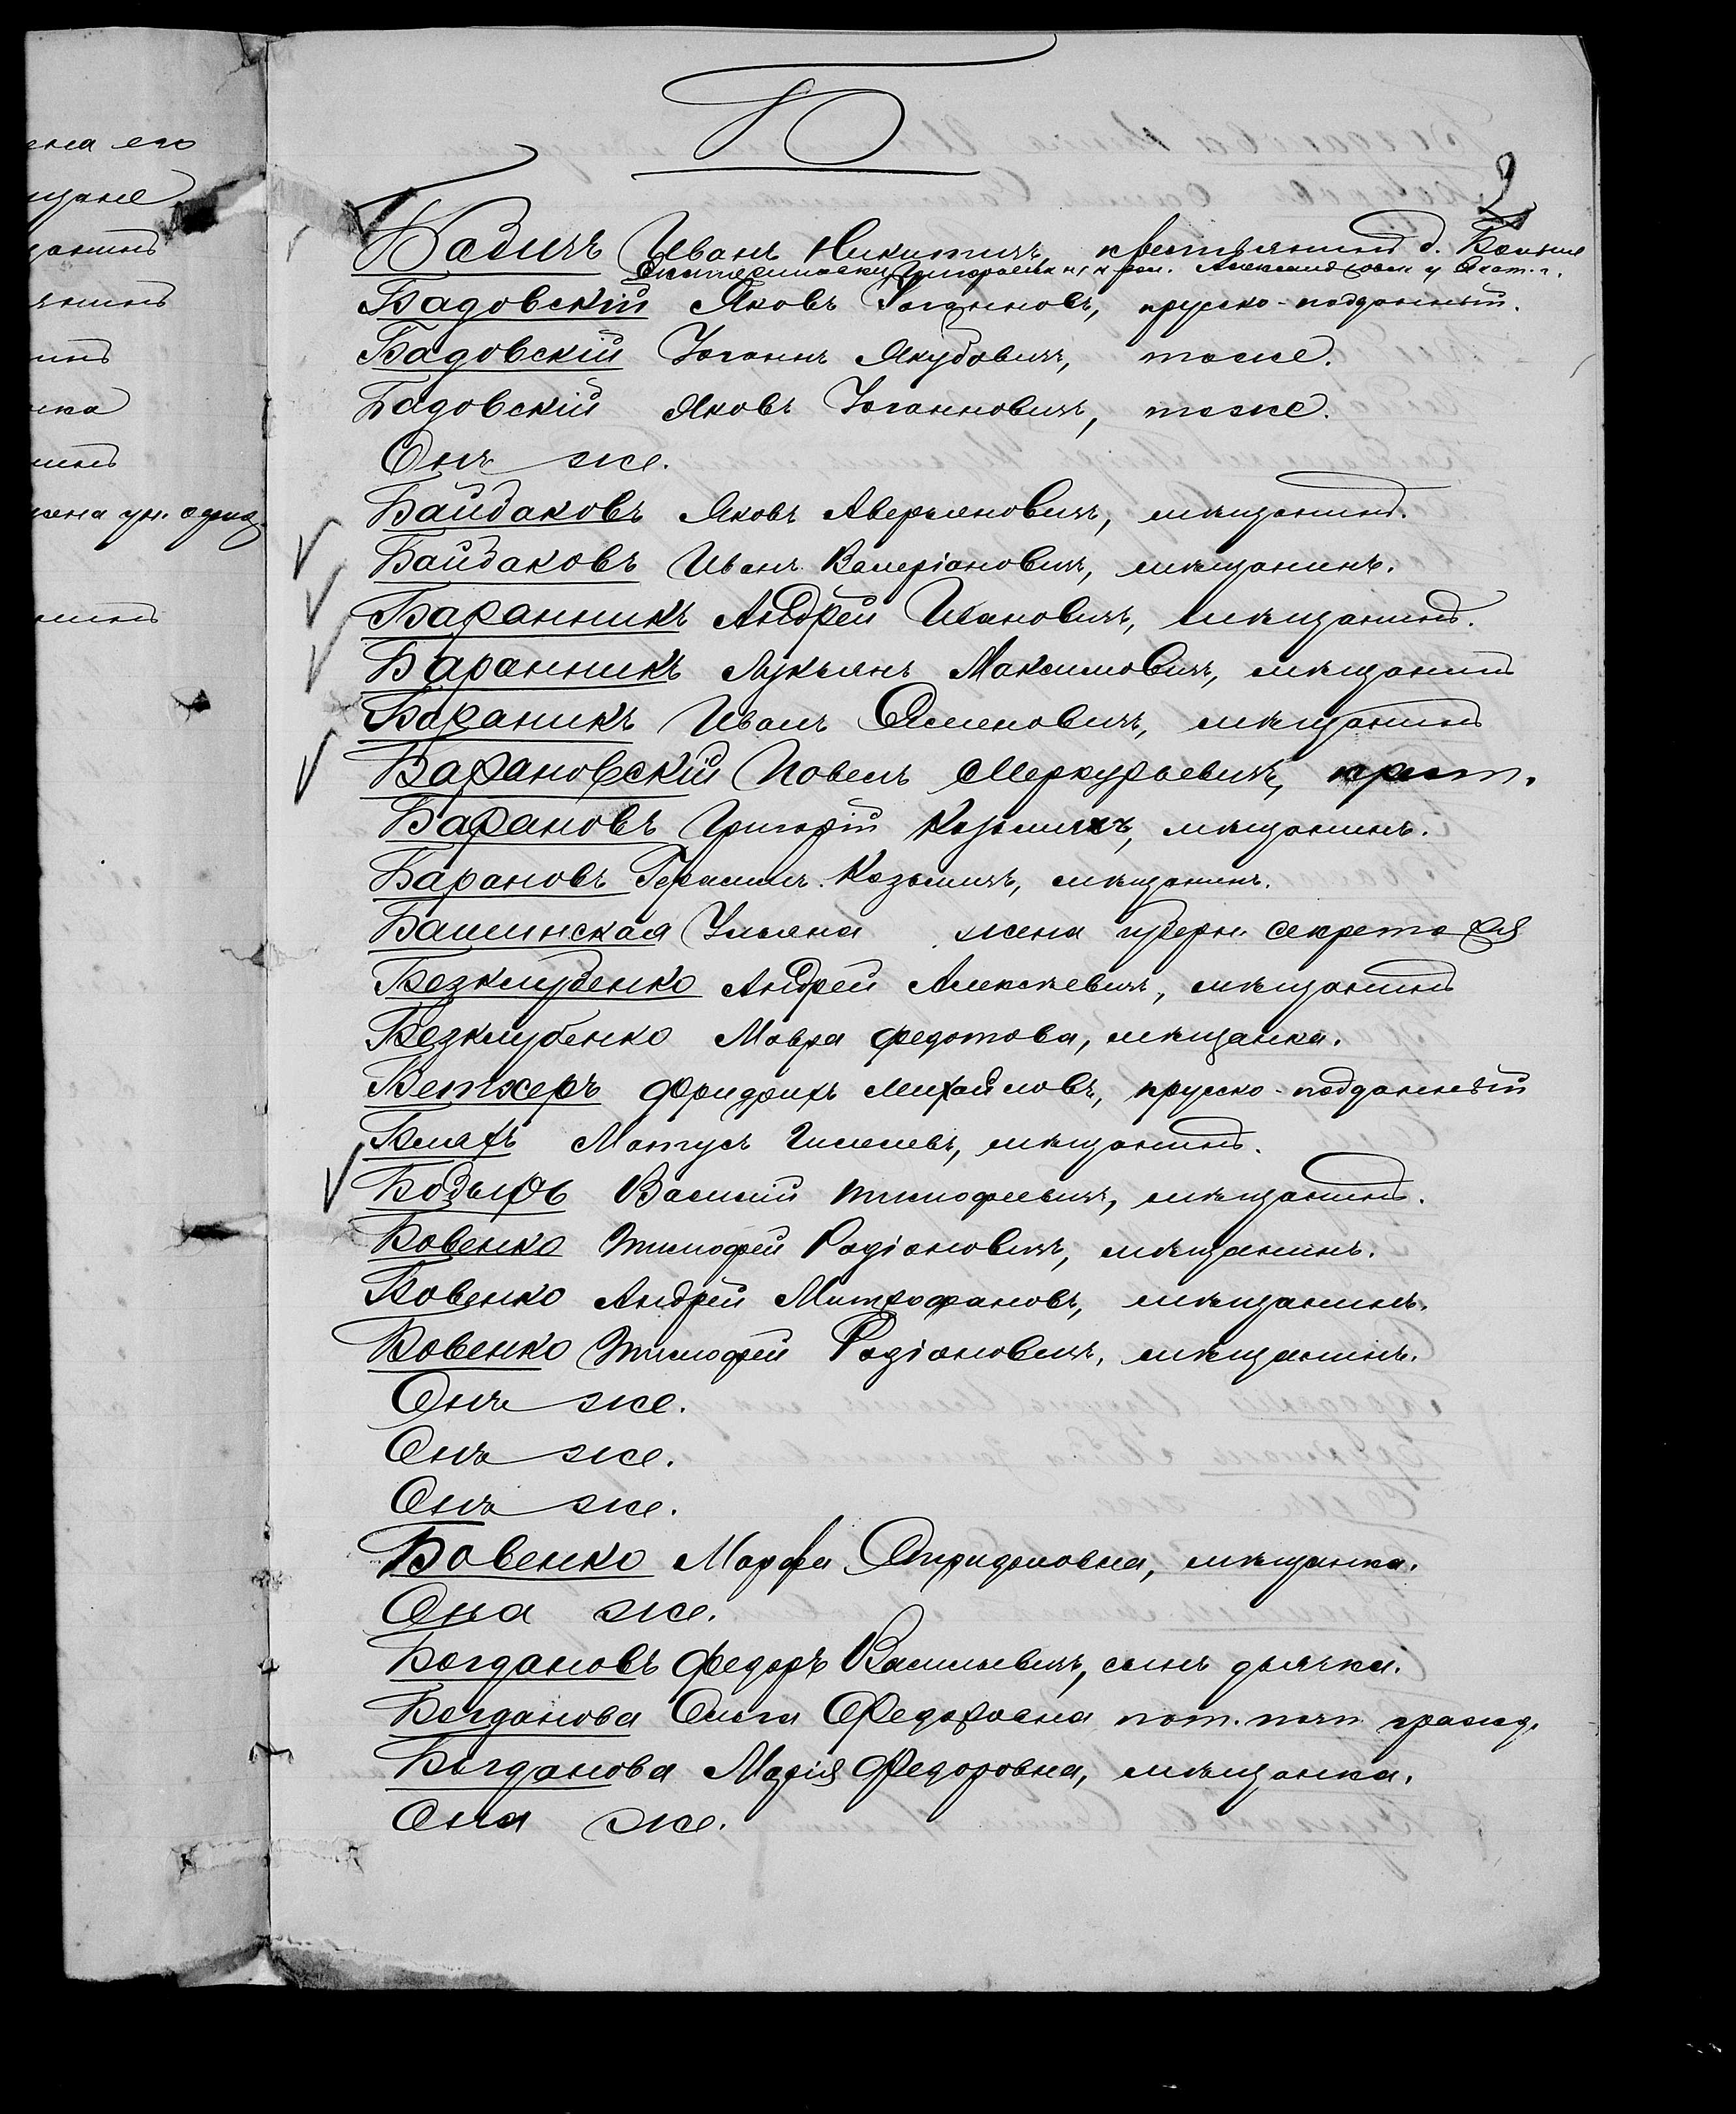 ена его
щане
ина
жена ун. офиц.
Б
2
Бабичъ Иванъ Никитичъ, крестьянинъ д.
Екатериновки, Григорьевки
Бадовскій Яковъ Іоганновъ, прусско-подданный.
Бадовскій Іоганнъ Якубовичъ, тоже.
Бадовскій Яковъ Іоганновичъ, тоже.
Онъ же.
Байдаковъ Яковъ Аверьяновичъ, мѣщанинъ.
Байдаковъ Иванъ Валеріановичъ, мѣщанинъ.
Баранникъ Андрей Ивановичъ, мѣщанинъ.
Баранникъ Лукьянъ Максимовичъ, мѣщанинъ
Бараникъ Иванъ Семеновичъ, мѣщанинъ
Барановскій Павелъ Меркурьевичъ, крест.
Барановъ Григорій Козьмичъ, мѣщанинъ.
Барановъ Герасимъ Козьмичъ, мѣщанинъ.
Башинская Ульяна жена губерн. секретаря
Безклубенко Андрей Алексѣевичъ, мѣщанинъ
Безклубенко Мавра Федотова, мѣщанка.
Бетхеръ Фридрихъ Михайловъ, прусско-подданный
Блахъ Матусъ Гилелевъ, мѣщанинъ.
Бобырь Василій Тимофеевичъ, мѣщанинъ.
Бовенко Тимофей Родіоновичъ, мѣщанинъ.
Бовенко Андрей Митрофановъ, мѣщанинъ.
Бовенко Тимофей Родіоновичъ, мѣщанинъ.
Онъ же.
Онъ же.
Онъ же.
Бовенко Марфа Спиридоновна, мѣщанка.
Она же.
Богдановъ Федоръ Васильевичъ, сынъ дьячка.
Богданова Ольга Федоровна пот. почт. гражд.
Богданова Марія Федоровна, мѣщанка.
Она же.